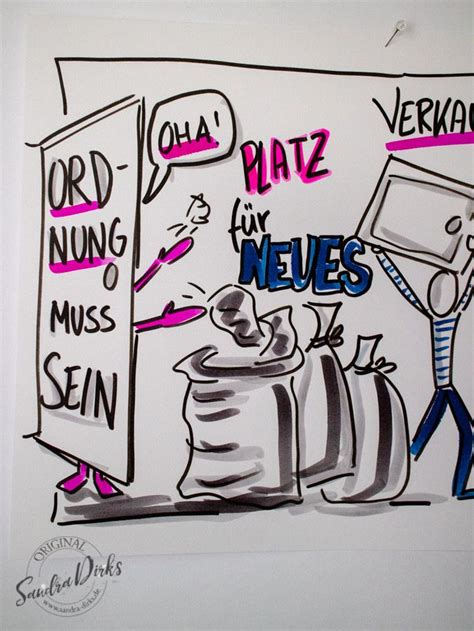 ORD-
NUNG
MUSS
SEIN
OHA!
PLATZ
für
NEUES
VERKAU
ORIGINAL
Sandra Dirks
www.sandra-dirks.de